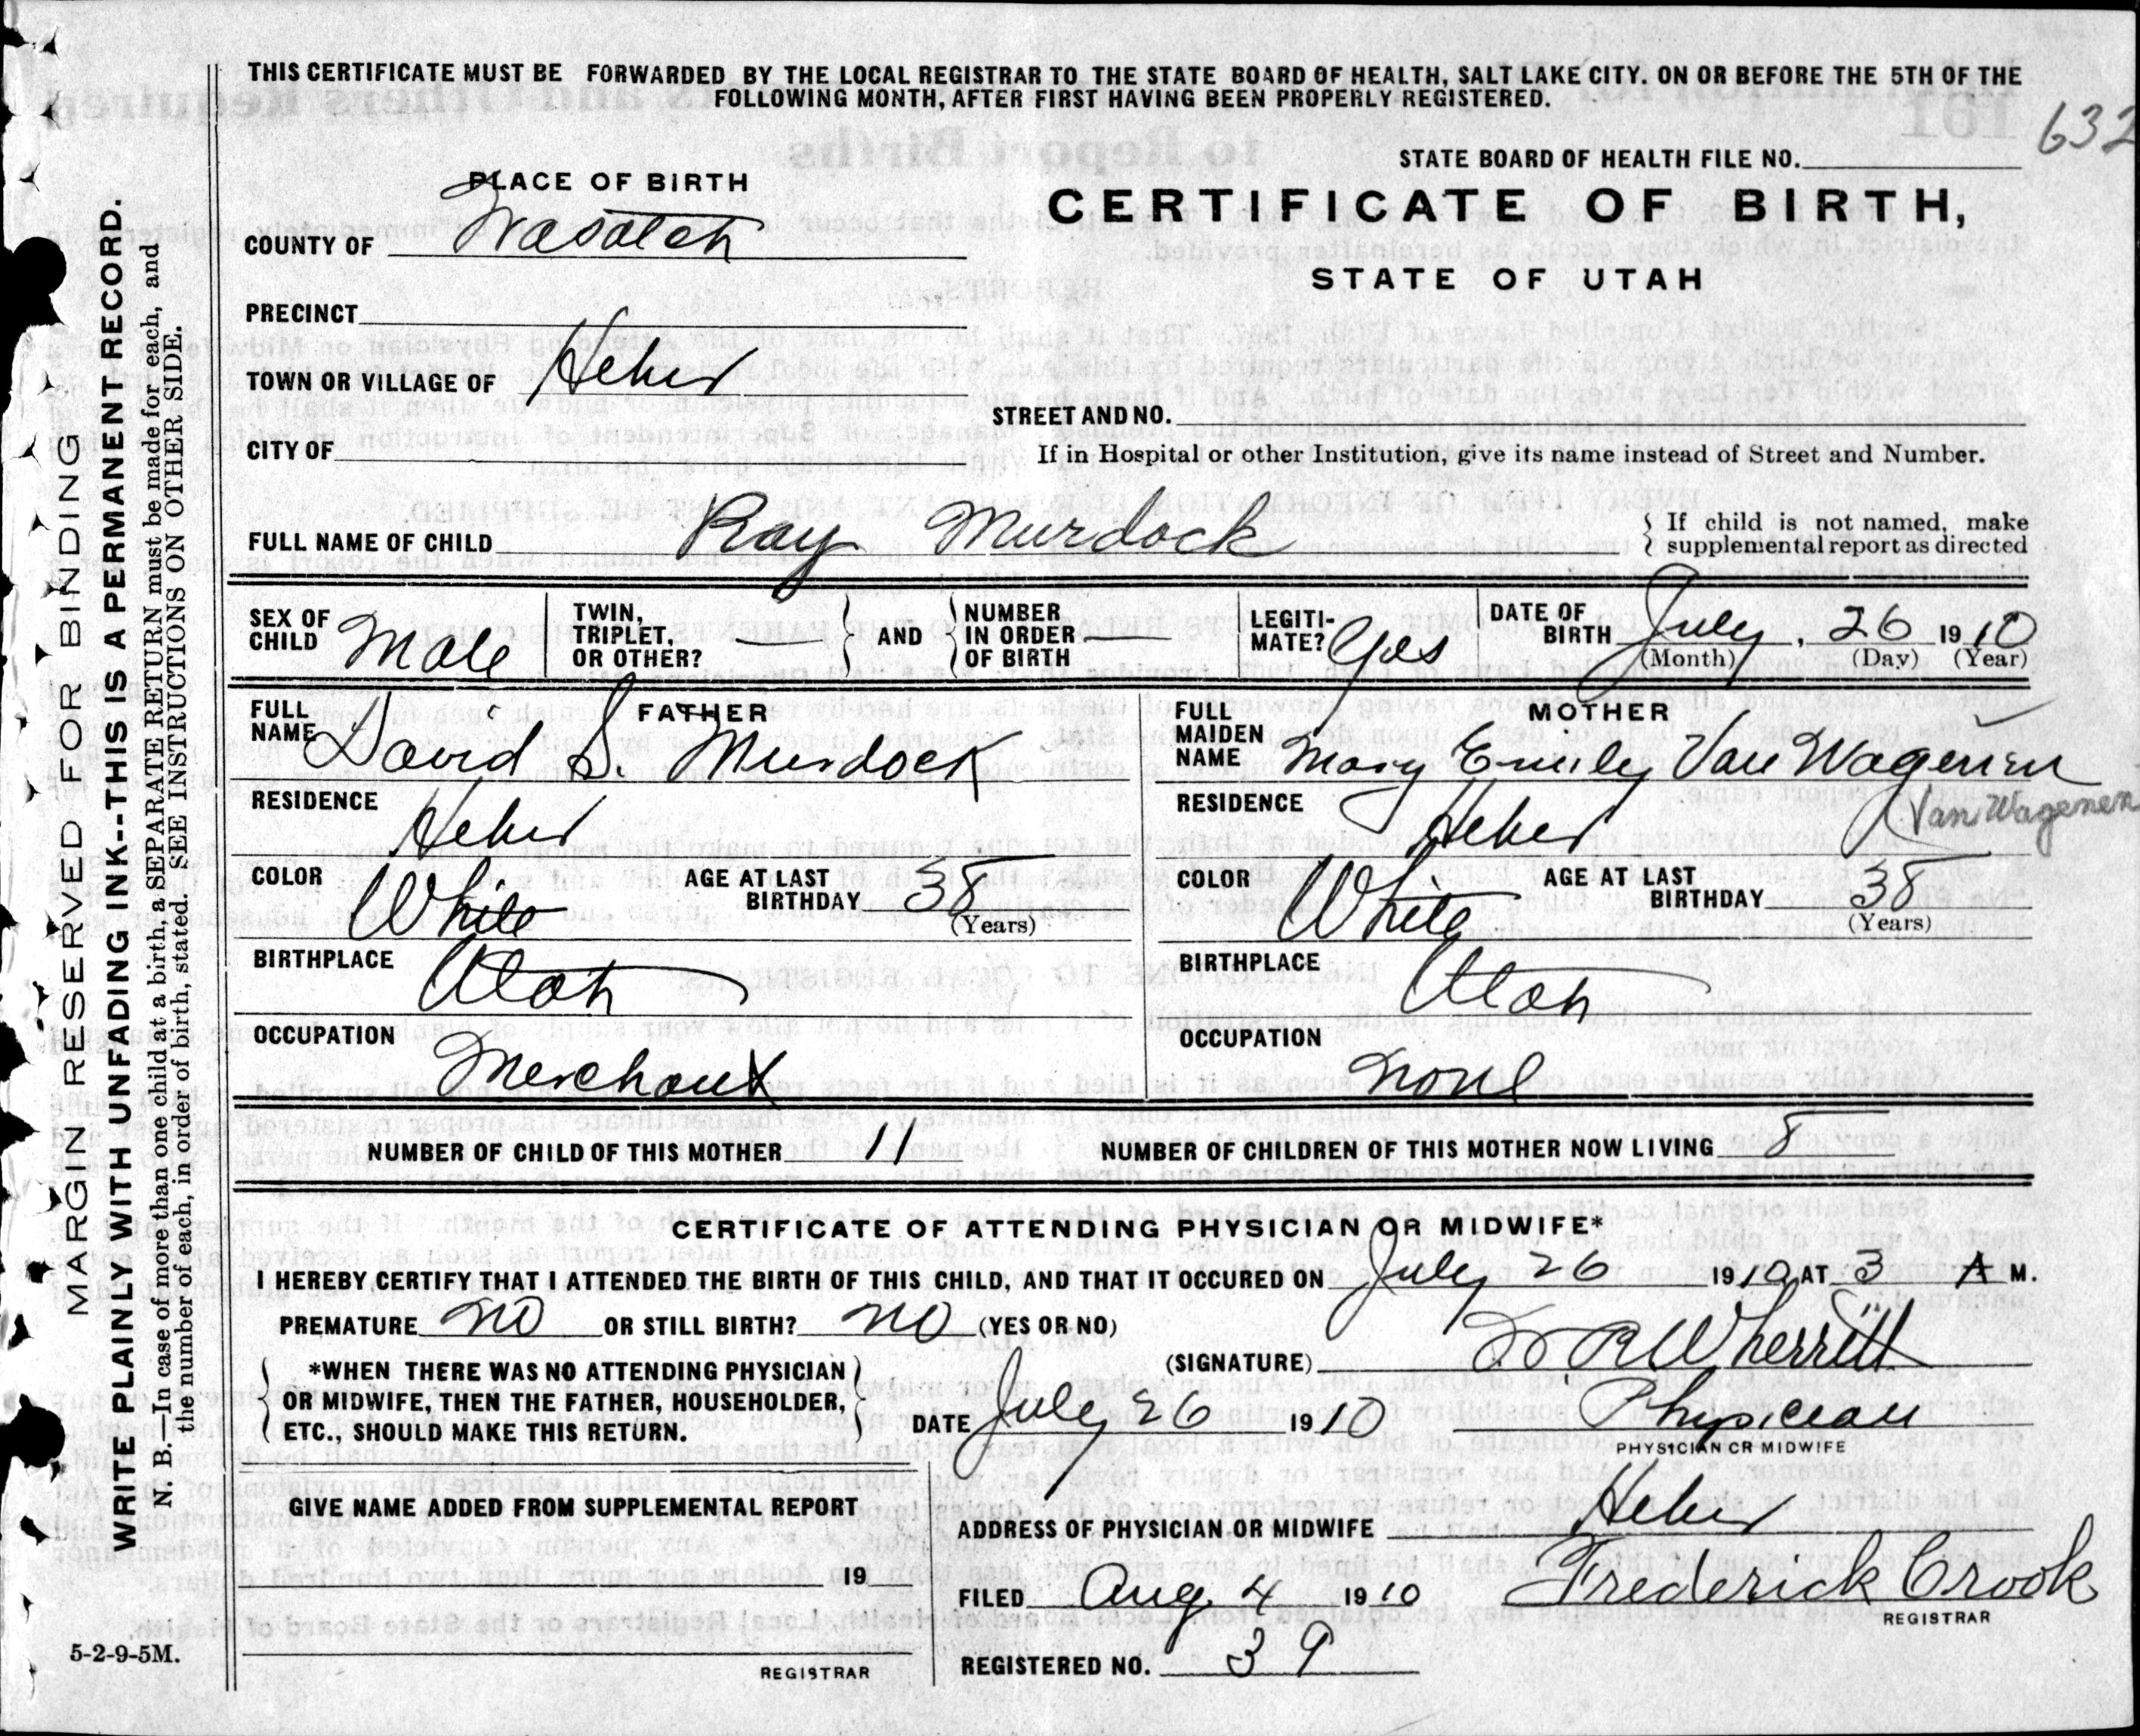 THIS CERTIFICATE MUST BE FORWARDED BY THE LOCAL REGISTRAR TO THE STATE BOARD OF HEALTH, SALT LAKE CITY. ON OR BEFORE THE 5TH OF THE
FOLLOWING MONTH, AFTER FIRST HAVING BEEN PROPERLY REGISTERED.
632
STATE BOARD OF HEALTH FILE NO.
PLACE OF BIRTH
CERTIFICATE OF BIRTH,
COUNTY OF Wasatch
STATE OF UTAH
PRECINCT
TOWN OR VILLAGE OF Heber
STREET AND NO.
CITY OF
If in Hospital or other Institution, give its name instead of Street and Number.
FULL NAME OF CHILD Ray Murdock
If child is not named, make
supplemental report as directed
SEX OF CHILD Male
TWIN, TRIPLET, OR OTHER? —
AND
NUMBER IN ORDER OF BIRTH —
LEGITI-MATE? Yes
DATE OF BIRTH July, 26 1910
(Month) (Day) (Year)
FATHER
FULL NAME David S. Murdock
RESIDENCE Heber
COLOR White
AGE AT LAST BIRTHDAY 38
(Years)
BIRTHPLACE Utah
OCCUPATION Merchant
MOTHER
FULL MAIDEN NAME Mary Emily Van Wagenen
Van Wagenen
RESIDENCE Heber
COLOR White
AGE AT LAST BIRTHDAY 38
(Years)
BIRTHPLACE Utah
OCCUPATION None
NUMBER OF CHILD OF THIS MOTHER 11 NUMBER OF CHILDREN OF THIS MOTHER NOW LIVING 8
CERTIFICATE OF ATTENDING PHYSICIAN OR MIDWIFE*
I HEREBY CERTIFY THAT I ATTENDED THE BIRTH OF THIS CHILD, AND THAT IT OCCURED ON July 26 1910, AT 3 A M.
PREMATURE no OR STILL BIRTH? no (YES OR NO)
*WHEN THERE WAS NO ATTENDING PHYSICIAN
OR MIDWIFE, THEN THE FATHER, HOUSEHOLDER,
ETC., SHOULD MAKE THIS RETURN.
(SIGNATURE) Wherritt
DATE July 26 1910 Physician
PHYSICIAN OR MIDWIFE
GIVE NAME ADDED FROM SUPPLEMENTAL REPORT
19
REGISTRAR
ADDRESS OF PHYSICIAN OR MIDWIFE Heber
FILED Aug. 4 1910 Frederick Crook
REGISTRAR
REGISTERED NO. 39
5-2-9-5M.
MARGIN RESERVED FOR BINDING
WRITE PLAINLY WITH UNFADING INK--THIS IS A PERMANENT RECORD.
N. B.—In case of more than one child at a birth, a SEPARATE RETURN must be made for each, and
the number of each, in order of birth, stated. SEE INSTRUCTIONS ON OTHER SIDE.